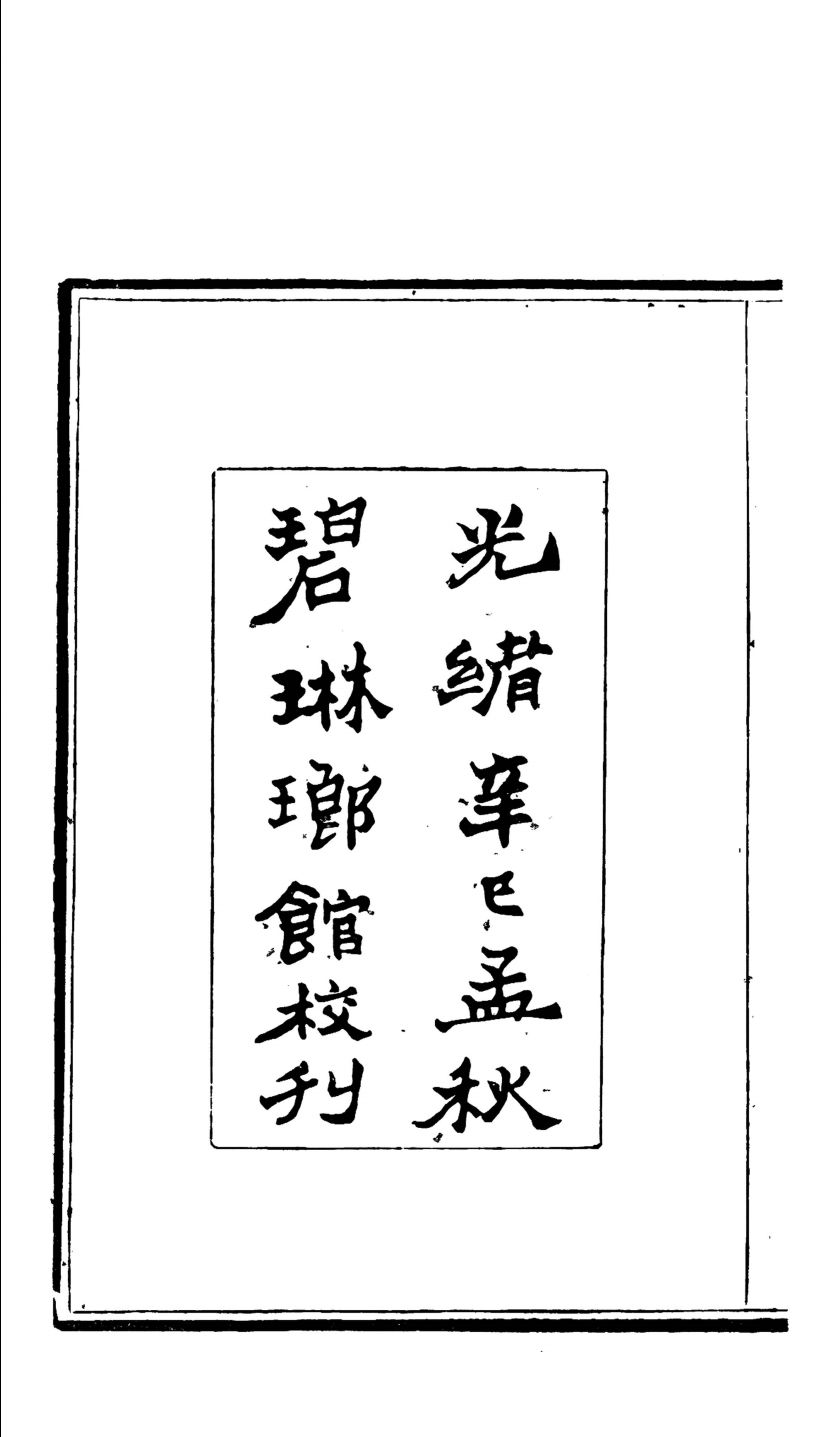 光緒辛巳孟秋
碧琳瑯館校刋